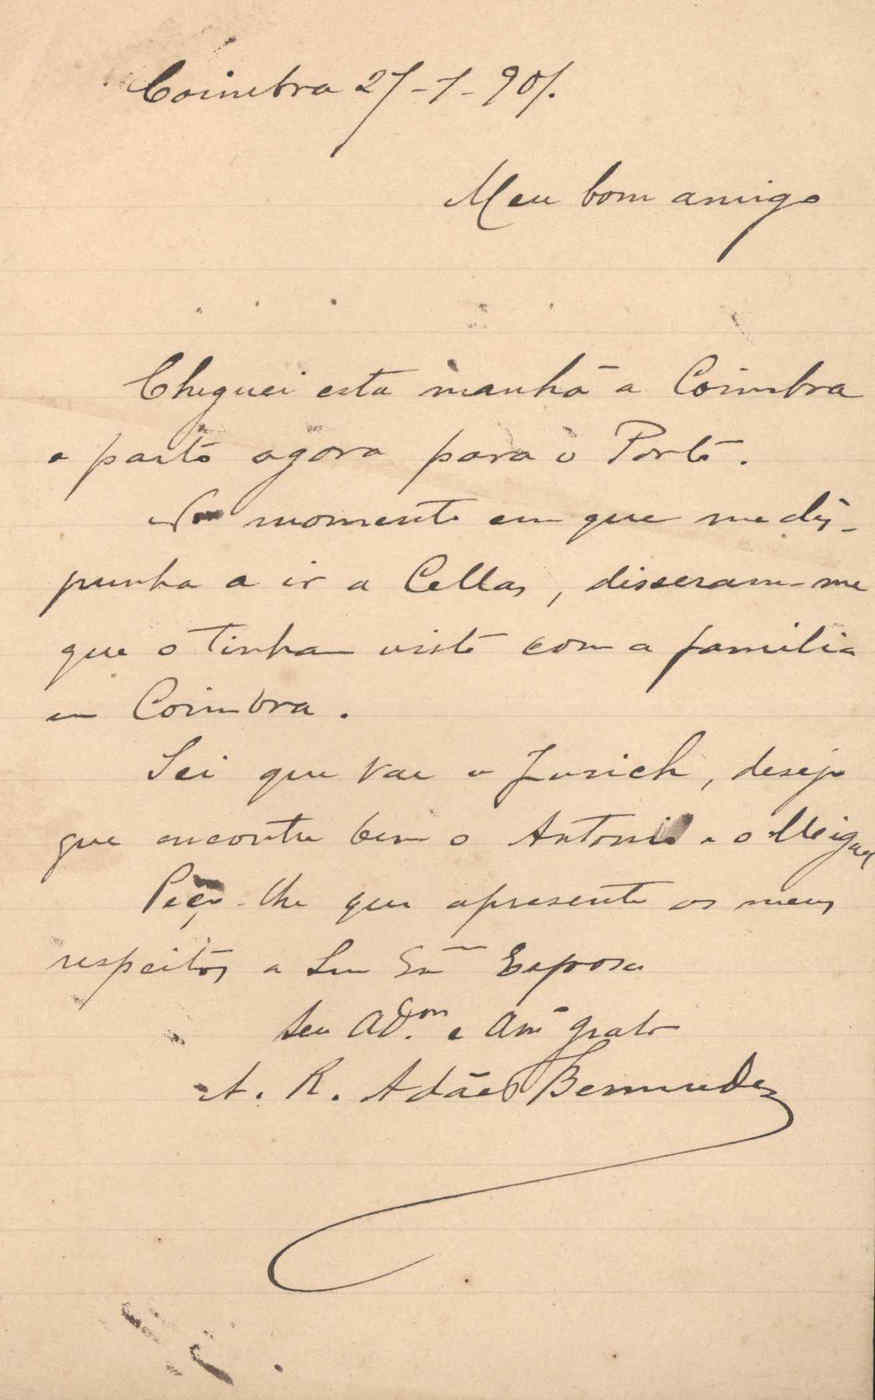 Coimbra 27-7-907.
Meu bom amigo
Cheguei esta manhã a Coimbra
e parto agora para o Porto.
No momento em que me dis-
punha a ir a Cellas, disseram-me
que o tinham visto com a familia
em Coimbra.
Sei que vae a Zurich, desejo
que encontre bem o Antonio e o Miguel
Peço-lhe que apresente os meus
respeitos a Sua Exma Esposa
Seu Ador. e Amo grato
A. R. Adães Bermudes